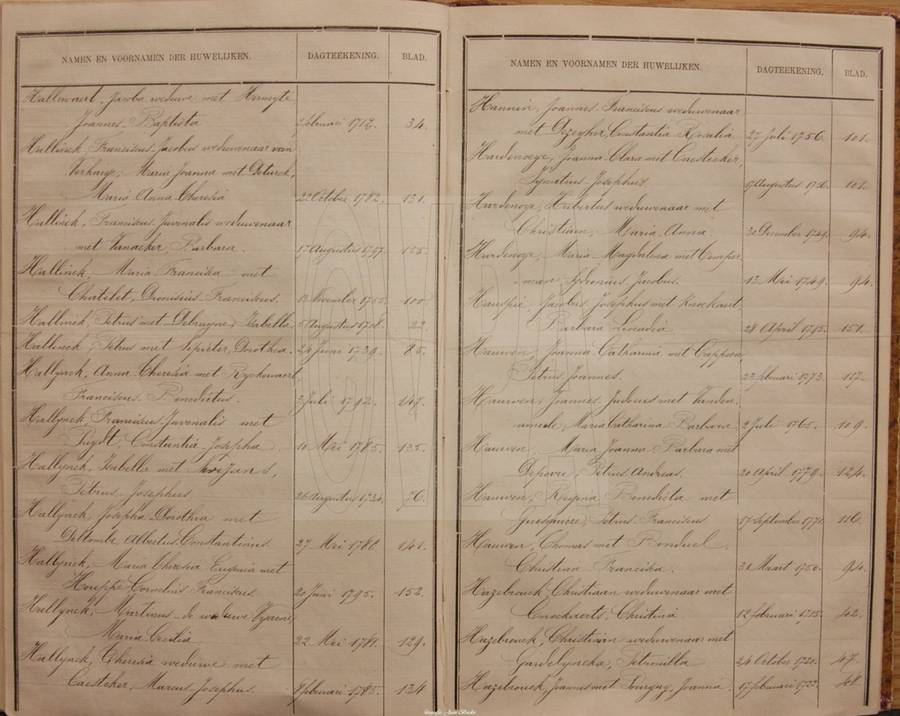 NAMEN EN VOORNAMEN DER HUWELIJKEN. DAGTEEKENING. BLAD.
Hallewaert, Jacoba weduwe met
Joannes Baptista 2 februari 1712. 34.
Hallinck, Franciscus Jacobus weduwenaar van
Maria Joanna met
Maria Anna Theresia 22 October 1782. 131.
Hallinck, Franciscus Juvenalis weduwenaar
met Vanacker, Barbara. 17 Augustus 155.
Hallinck, Maria Francisca met
Chatelet, Dionisius Franciscus. November 1755. 100
Hallinck, Petrus met Debruyne, Isabella. Augustus 22.
Hallinck, Petrus met Dorothea. 24 Juni 1739. 85.
Hallynck, Anna Theresia met Ryckewaert,
Franciscus Benedictus. 3 Juli 1792. 147.
Hallynck, Franciscus Juvenalis met
Puydt, Constantia Josepha 11 Mei 1785. 135.
Hallynck, Isabella met
Petrus Josephus. 26 Augustus 1734. 76.
Hallynck, Josepha Dorothea met
Deltombe Albertus Constantinus 27 Mei 1788 141.
Hallynck, Maria Theresia Eugenia met
Houppe Cornelius Franciscus 20 Juni 1795. 152.
Hallynck, Martinus
Maria Cecilia 22 Mei 1781. 129.
Hallynck, Theresia weduwe met
Caesteker, Marcus Josephus. februari 1785. 134
NAMEN EN VOORNAMEN DER HUWELIJKEN. DAGTEEKENING. BLAD.
Joannes Franciscus weduwenaar
met Constantia Rosalia 27 Juli 1756. 101.
Hardevoege, Joanna Clara met Caestecker,
Ignatius Josephus. Augustus 1756. 101.
Hardevoge, Hubertus weduwenaar met
Christiaen, Maria Anna. December 1749. 94.
Hardevoge, Maria Magdalena met
Sydonius Jacobus. 13 Mei 1749. 94.
Jacobus Josephus met Knockaert
Barbara Leocadia 28 April 1795. 151.
Hauwen, Joanna Catharina met
Petrus Joannes. 23 februari 1773. 117.
Hauwen, Joannes Judocus met
Maria Catharina Barbara 2 Juli 1765. 109.
Hauwen, Maria Joanna Barbara met
Depovre, Petrus Andreas. 20 April 1779. 124.
Hauwen, Regina Benedicta met
Petrus Franciscus 17 September 1771. 116.
Hauwen, Thomas met Bonduel
Christina Francisca. 31 Maart 1750. 94.
Hazebrouck, Christiaan weduwenaar met
Christina 12 februari 1715. 42.
Hazebrouck, Christiaan weduwenaar met
Petronilla 24 October 1721. 47.
Hazebrouck, Joannes met Joanna. 17 februari 1722. 48